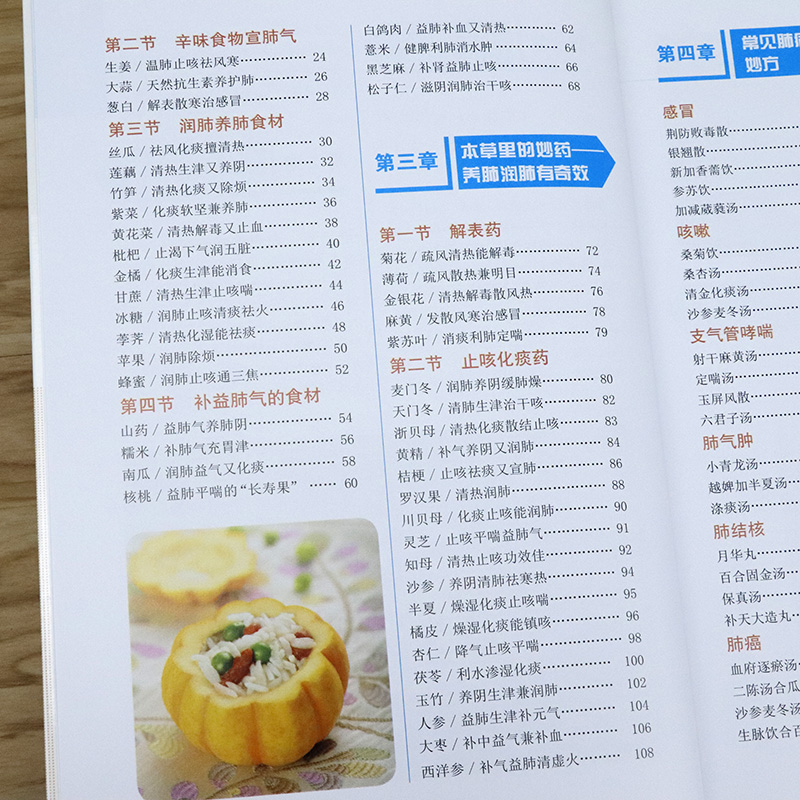 第二节 辛味食物宣肺气
生姜/温肺止咳祛风寒…………… 24
大蒜/天然抗生素养护肺………… 26
葱白/解表散寒治感冒…………… 28
第三节 润肺养肺食材
丝瓜/祛风化痰擅清热…………… 30
莲藕/清热生津又养阴…………… 32
竹笋/清热化痰又除烦…………… 34
紫菜/化痰软坚兼养肺…………… 36
黄花菜/清热解毒又止血………… 38
枇杷/止渴下气润五脏…………… 40
金橘/化痰生津能消食…………… 42
甘蔗/清热生津止咳喘…………… 44
冰糖/润肺止咳清痰祛火………… 46
荸荠/清热化湿能祛痰…………… 48
苹果/润肺除烦…………………… 50
蜂蜜/润肺止咳通三焦…………… 52
第四节 补益肺气的食材
山药/益肺气养肺阴……………… 54
糯米/补肺气充胃津……………… 56
南瓜/润肺益气又化痰…………… 58
核桃/益肺平喘的“长寿果” …… 60
白鸽肉/益肺补血又清热………… 62
薏米/健脾利肺消水肿…………… 64
黑芝麻/补肾益肺止咳…………… 66
松子仁/滋阴润肺治干咳………… 68
第三章 本草里的妙药——
养肺润肺有奇效
第一节 解表药
菊花/疏风清热能解毒…………… 72
薄荷/疏风散热兼明目…………… 74
金银花/清热解毒散风热………… 76
麻黄/发散风寒治感冒…………… 78
紫苏叶/消痰利肺定喘…………… 79
第二节 止咳化痰药
麦门冬/润肺养阴缓肺燥………… 80
天门冬/清肺生津治干咳………… 82
浙贝母/清热化痰散结止咳……… 83
黄精/补气养阴又润肺…………… 84
桔梗/止咳祛痰又宣肺…………… 86
罗汉果/清热润肺………………… 88
川贝母/化痰止咳能润肺………… 90
灵芝/止咳平喘益肺气…………… 91
知母/清热止咳功效佳…………… 92
沙参/养阴清肺祛寒热…………… 94
半夏/燥湿化痰止咳喘…………… 95
橘皮/燥湿化痰能镇咳…………… 96
杏仁/降气止咳平喘……………… 98
茯苓/利水渗湿化痰……………… 100
玉竹/养阴生津兼润肺…………… 102
人参/益肺生津补元气…………… 104
大枣/补中益气兼补血…………… 106
西洋参/补气益肺清虚火………… 108
第四章 常见肺
妙方
感冒
荆防败毒散……………
银翘散…………………
新加香薷饮……………
参苏饮…………………
加减葳蕤汤……………
咳嗽
桑菊饮…………………
桑杏汤…………………
清金化痰汤……………
沙参麦冬汤……………
支气管哮喘
射干麻黄汤……………
定喘汤…………………
玉屏风散………………
六君子汤………………
肺气肿
小青龙汤………………
越婢加半夏汤…………
涤痰汤…………………
肺结核
月华丸…………………
百合固金汤……………
保真汤…………………
补天大造丸……………
肺癌
血府逐瘀汤……………
二陈汤合瓜
沙参麦冬汤
生脉饮合百